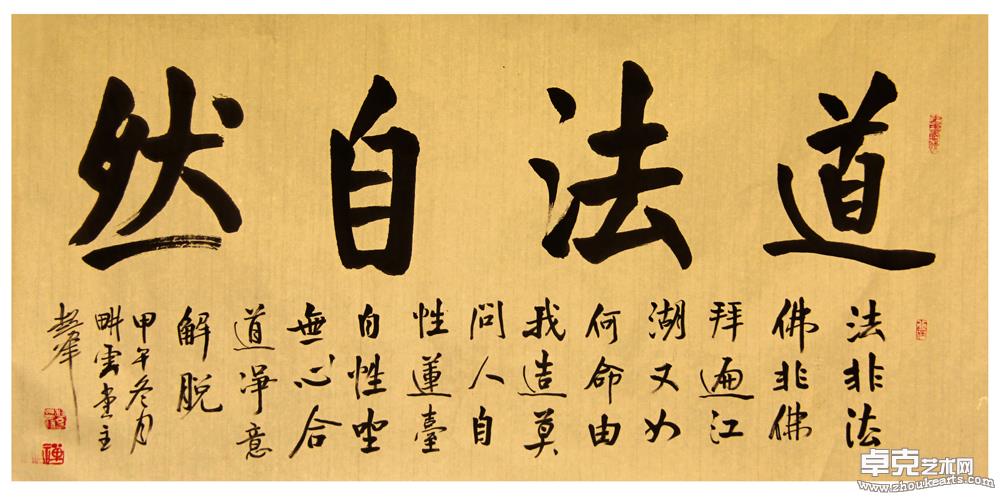 道法自然
法非法
佛非佛
拜遍江
湖又如
何命由
我造莫
问人自
性蓮臺
自性坐
無心合
道淨意
解脱
甲午冬月
畊雲堂主
卓克艺术网
www.zhoukearts.com